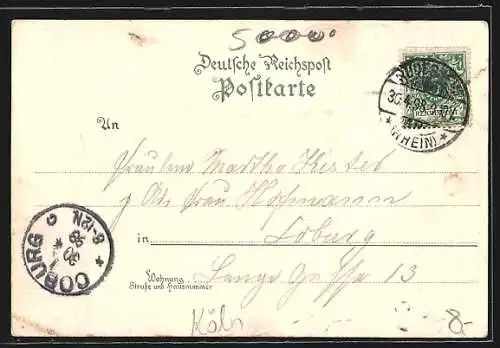 5000
Deutsche Reichspost
Postkarte
RÜDESH
30.4.98
(RHEIN)
An
Fräulein Martha
Frau Hofmann
in Coburg
Wohnung
Straße und Hausnummer
Lange Gasse 13
COBURG
30
98
8-12N.
Köln
8-